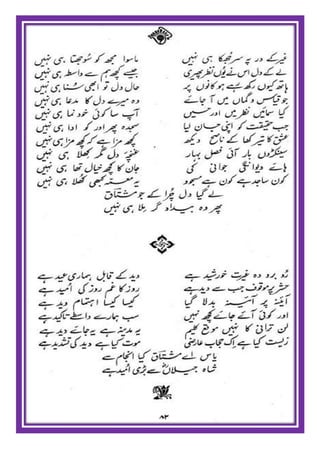 غیر کے در پہ سر جھکا ہی نہیں ماسوا مجھ کو سوجھتا ہی نہیں
لے کے دل اس نے یوں نظر پھیری جیسے کچھ ہم سے واسطہ ہی نہیں
ہاتھ کیوں رکھ لیے ہو کانوں پر حال دل تو ابھی سنا ہی نہیں
جو قیاس و گماں میں آ جائے وہ میرے دل کا مدعا ہی نہیں
کیا سمائیں نظر میں اور حسیں آپ سا کوئی خود نما ہی نہیں
جب حقیقت کو اپنی جان لیا سجدہ پھر اور کو ادا ہی نہیں
عشق کا تیر کھا کے ناصح دیکھ کچھ مزا ہے کہ کچھ مزا ہی نہیں
سینکڑوں بار آئی فصل بہار غنچۂ دل مگر کھلا ہی نہیں
ہائے دیوانگی جوانی کی جان کا کچھ خیال تھا ہی نہیں
کون ساجد ہے کون ہے مسجود یہ معمہ کبھی کھلا ہی نہیں
لے گیا دل چرا کے جو مشتاق
پھر وہ بیدادگر ملا ہی نہیں
رو برو وہ غیرت خورشید ہے دید کے قابل ہماری عید ہے
حشر پر موقوف جب سے دید ہے روز کا غم روز کی امید ہے
آئینہ پر آئینہ بدلا گیا کیسا کیسا اہتمام دید ہے
اور کوئی آئے جائے کچھ نہیں سب ہمارے واسطے تاکید ہے
لن ترانی کا نہیں موقع کلیم یہ مدینہ ہے یہ جائے دید ہے
زیست کیا ہے اک حجاب عارضی موت کیا ہے دید کی تشدید ہے
یاس اے مشتاق کیا انجام سے
شاہ جیلاں سے بڑی امید ہے
۸۲